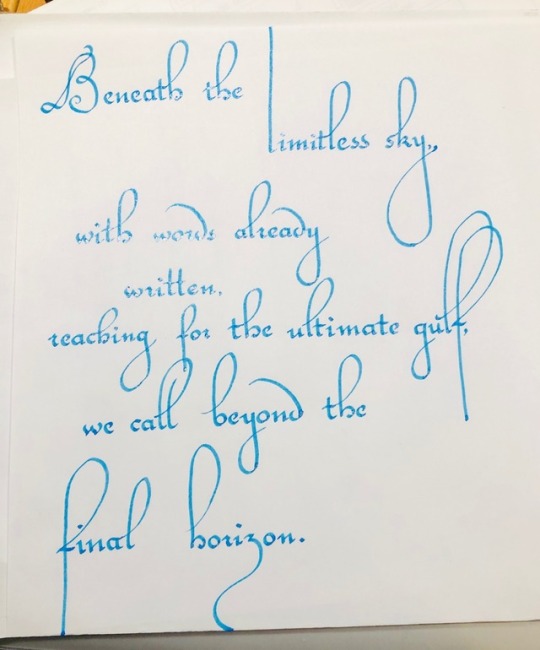 Beneath the
limitless sky,
with words already
written,
reaching for the ultimate gulf,
we call beyond the
final horizon.